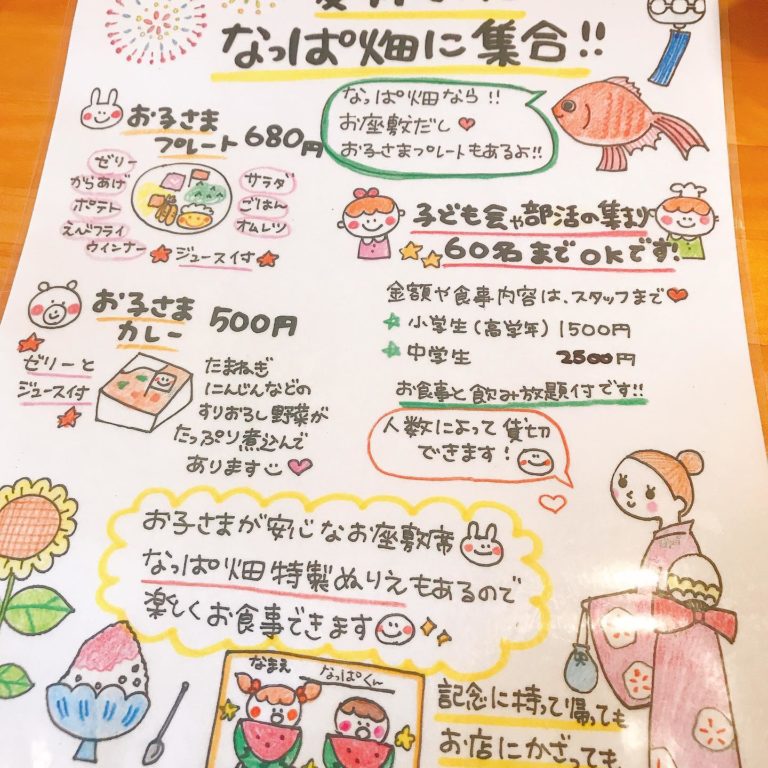 なっぱ畑に集合!!
なっぱ畑なら!!
お座敷だし♥
お子さまプレートもあるよ!!
お子さま
プレート 680円
ゼリー
からあげ
ポテト
えびフライ
ウインナー
サラダ
ごはん
オムレツ
★ジュース付★
子ども会や部活の集まり
60名までOKです!
金額や食事内容は、スタッフまで♥
★小学生(高学年) 1500円
★中学生 2500円
お食事と飲み放題付です!!
人数によって貸切
できます!
お子さま
カレー 500円
ゼリーと
ジュース付
たまねぎ
にんじんなどの
すりおろし野菜が
たっぷり煮込んで
あります
お子さまが安心なお座敷席
なっぱ畑特製ぬりえもあるので
楽しくお食事できます
なまえ
なっぱくん
記念に持って帰っても
お店にかざっても